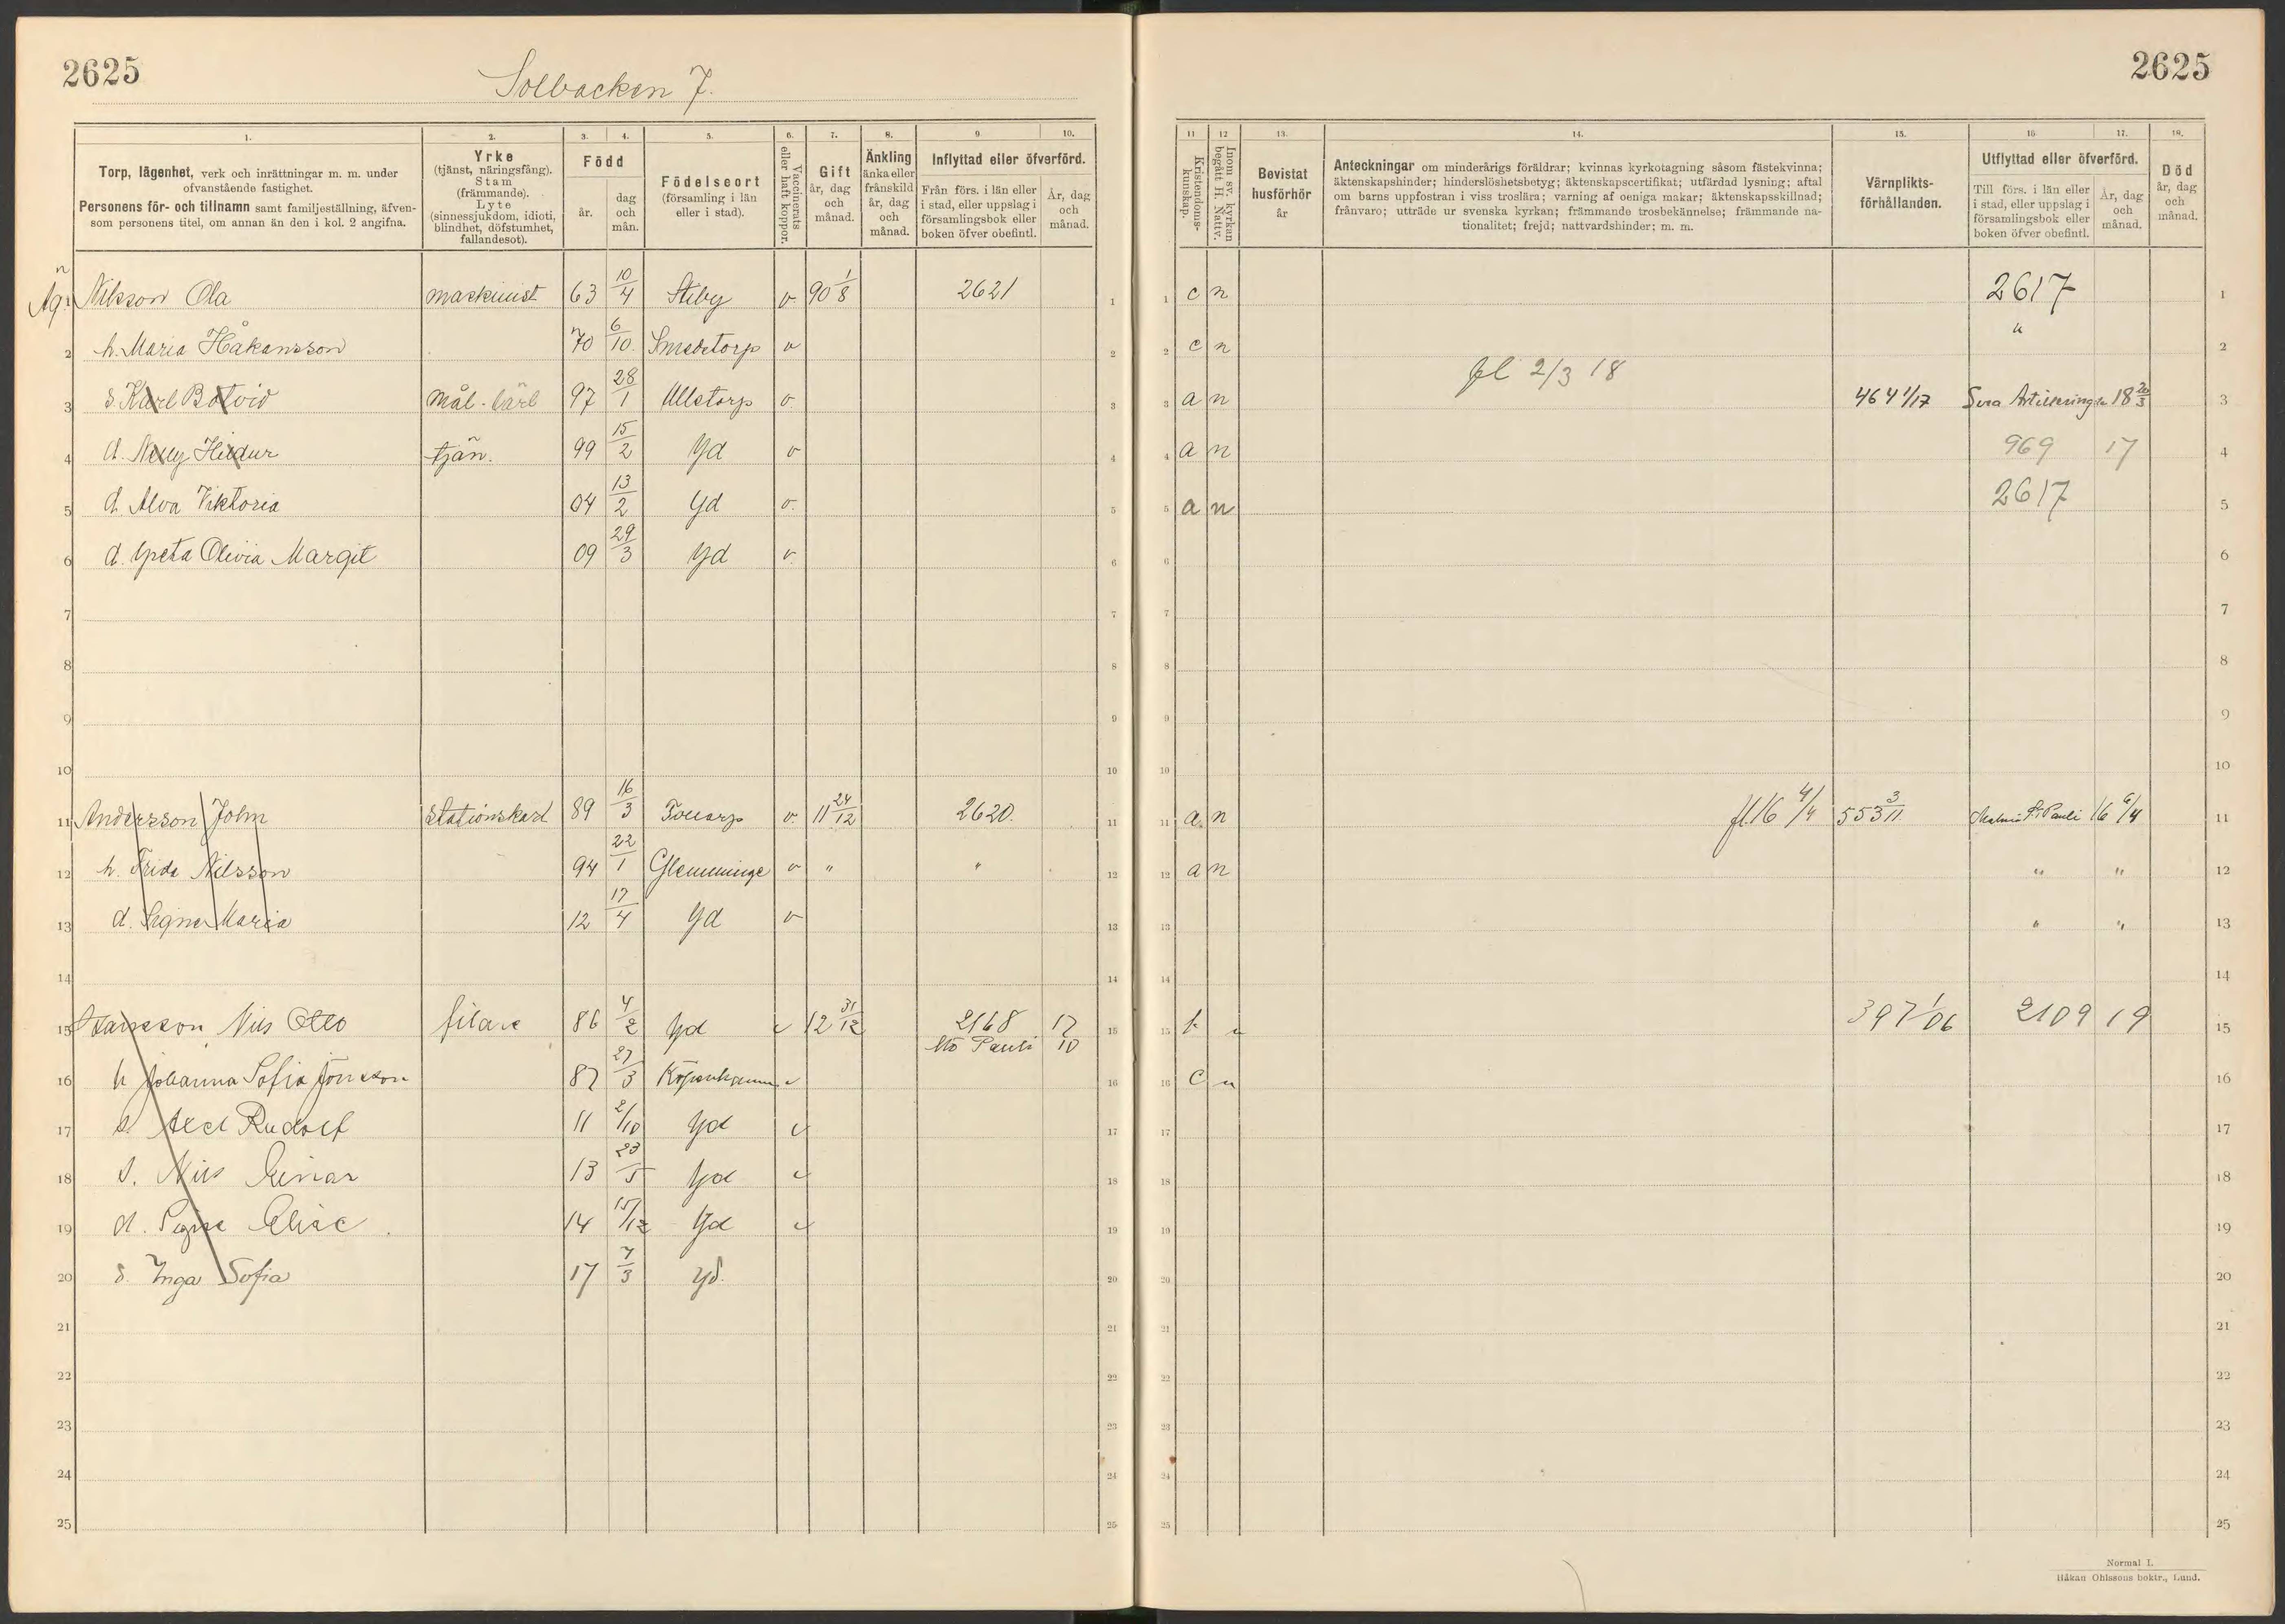 2625
Solbacken 7.
1. 2. 3. 4. 5. 6. 7. 8. 9. 10.
Torp, lägenhet, verk och inrättningar m. m. under
ofvanstående fastighet.
Personens för- och tillnamn samt familjeställning, äfven-
som personens titel, om annan än den i kol. 2 angifna.
Yrke
(tjänst, näringsfång).
Stam
(främmande).
Lyte
(sinnessjukdom, idioti,
blindhet, döfstumhet,
fallandesot).
Född
år.
dag
och
mån.
Födelseort
(församling i län
eller i stad).
Vaccinerats
eller haft koppor.
Gift
år, dag
och
månad.
Änkling
änka eller
frånskild
år, dag
och
månad.
Inflyttad eller öfverförd.
Från förs. i län eller
i stad, eller uppslag i
församlingsbok eller
boken öfver obefintl.
År, dag
och
månad.
1 Nilsson Ola maskinist 63 10/4 Stiby v 90 1/8 2621
2 h. Maria Håkansson 70 6/10 Smedstorp v
3 s. Karl Botvid mål. lärl 97 28/1 Ullstorp v
4 d. Nelly Hildur tjän. 99 15/2 Yd v
5 d. Alva Viktoria 04 13/2 Yd v
6 d. Greta Olivia Margit 09 29/3 Yd v
7
8
9
10
11 Andersson John stationskarl 89 16/3 v. 11 24/12 2620.
12 h. Frida Nilsson 94 22/1 Glemminge v " "
13 d. Signe Maria 12 17/4 Yd v
14
15 Hansson, Nils Otto filare 86 4/2 Yd v 12 31/12 2168 17
Mö Pauli 10
16 h Johanna Sofia Jönsson 87 27/3 v
17 s. Axel Rudolf 11 2/10 Yd v
18 s. Nils Einar 13 23/5 Yd v
19 d. Signe Elise 14 15/12 Yd v
20 d. Inga Sofia 17 7/3 Yd.
21
22
23
24
25
2625
11 12 13. 14. 15. 16 17. 18.
Kristendoms-
kunskap.
Inom sv. kyrkan
begått H. Nattv.
Bevistat
husförhör
år
Anteckningar om minderårigs föräldrar; kvinnas kyrkotagning såsom fästekvinna;
äktenskapshinder; hinderslöshetsbetyg; äktenskapscertifikat; utfärdad lysning; aftal
om barns uppfostran i viss troslära; varning af oeniga makar; äktenskapsskillnad;
frånvaro; utträde ur svenska kyrkan; främmande trosbekännelse; främmande na-
tionalitet; frejd; nattvardshinder; m. m.
Värnplikts-
förhållanden.
Utflyttad eller öfverförd.
Till förs. i län eller
i stad, eller uppslag i
församlingsbok eller
boken öfver obefintl.
År, dag
och
månad.
Död
år, dag
och
månad.
1 c n 2617 1
2 c n " 2
fl 2/3 18
3 a n 464 1/17 Svea 18 3
4 a n 969 17 4
5 a n 2617 5
6 6
7 7
8 8
9 9
10 10
11 a n fl. 16 4/4 553 3/11 Malmö St. Pauli 16 6/4 11
12 a n " " 12
13 " " 13
14 14
15 n 397 1/06 2109 19 15
16 c n 16
17 17
18 18
19 19
20 20
21 21
22 22
23 23
24 24
25 25
Normal I.
Håkan Ohlssons boktr., Lund.